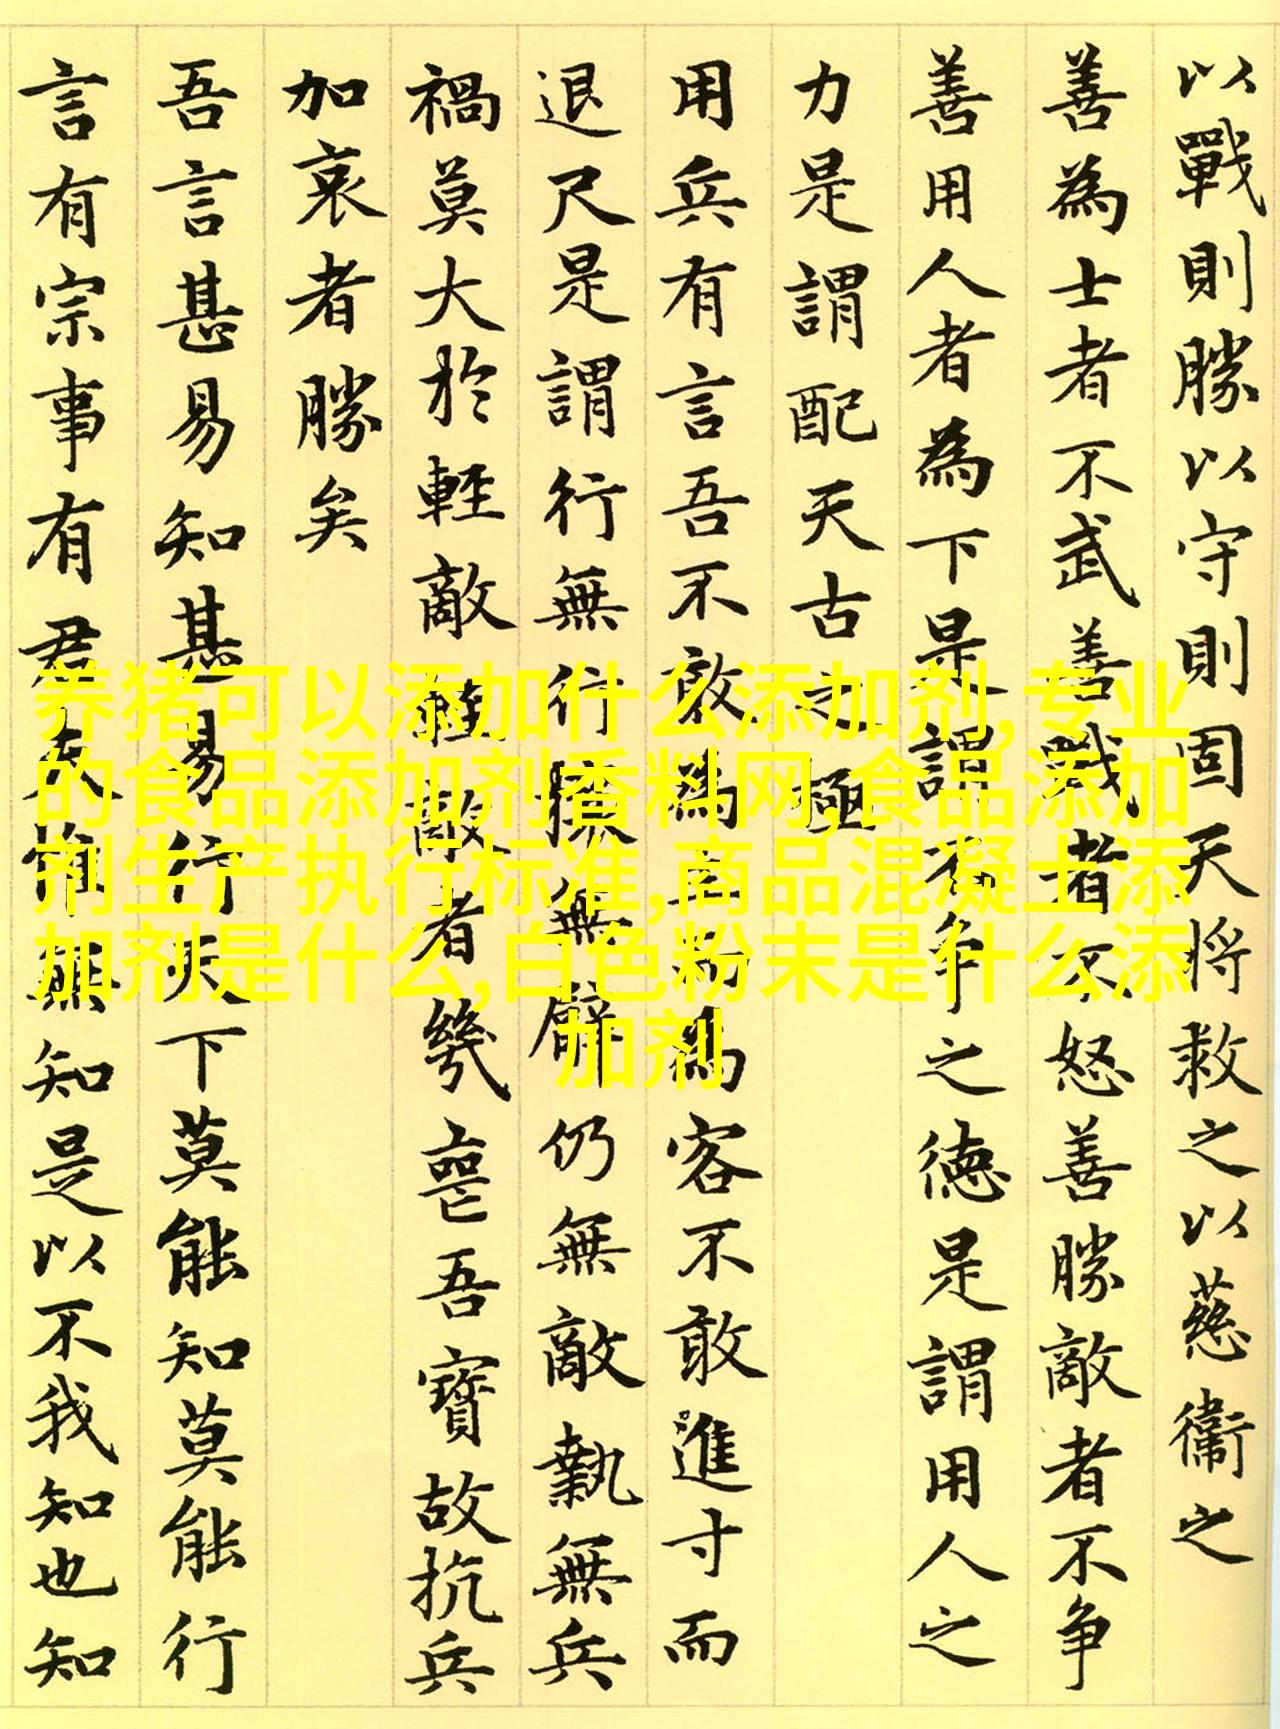 以戰則勝以守則固天將救之以慈衞之
善為士者不武善戰者不怒善勝敵者不争
善用人者為下是謂不争之德是謂用人之
力是謂配天古之極
用兵有言吾不敢為主而為客不敢進寸而
退尺是謂行無行攘無臂仍無敵執無兵
禍莫大於輕敵輕敵者幾喪吾寶故抗兵
加哀者勝矣
吾言甚易知甚易行天下莫能知莫能行
言有宗事有君夫惟無知是以不我知也知
养猪可以添加什么添加剂,专业
的食品添加剂香料网,食品添加
剂生产执行标准,商品混凝土添
加剂是什么,白色粉末是什么添
加剂